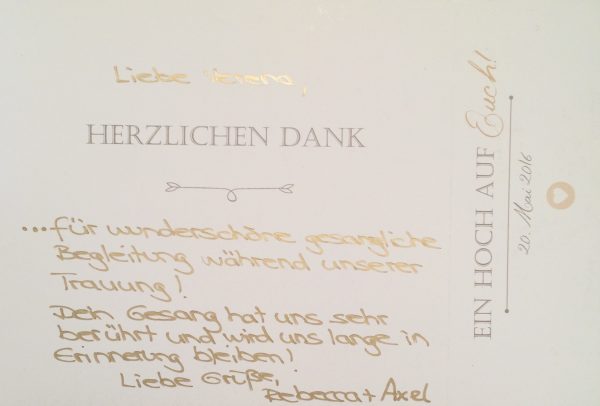 Liebe Verena,
HERZLICHEN DANK
...für wunderschöne gesangliche
Begleitung während unserer
Trauung!
Dein Gesang hat uns sehr
berührt und wird uns lange in
Erinnerung bleiben!
Liebe Grüße,
Rebecca + Axel
EIN HOCH AUF Euch!
20. Mai 2016